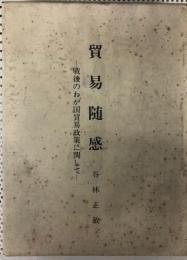 貿易随感
―戦後のわが国貿易政策に関して―
谷林正敏